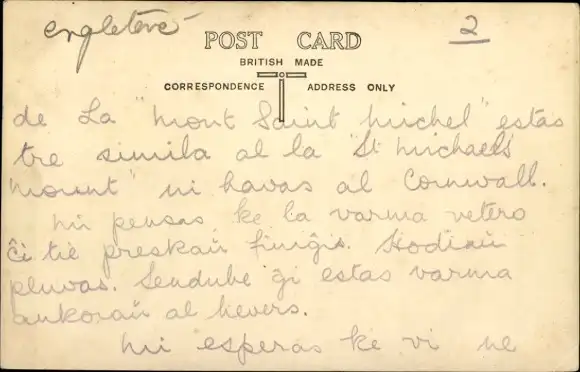 Angleterre
2
POST CARD
BRITISH MADE
CORRESPONDENCE ADDRESS ONLY
de La "Mont Saint Michel" estas
tre simila al la "St Michaels
Mount" ni havas al Cornwall.
Mi pensas ke la varma vetero
ĉi tie preskaŭ finiĝis. Hodiaŭ
pluvas. Sendube ĝi estas varma
ankoraŭ al
Mi esperas ke vi ne